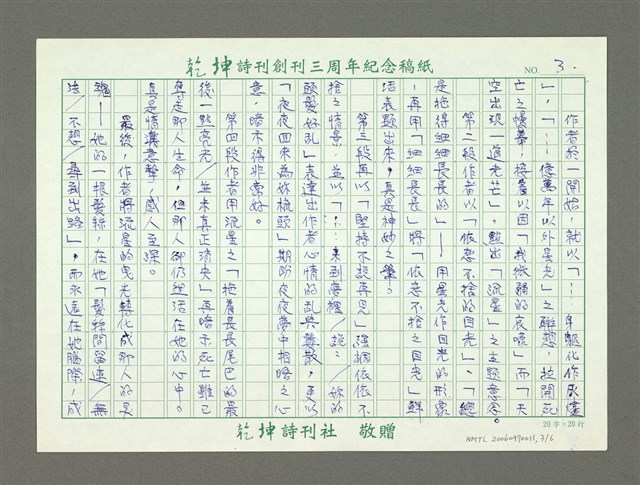 乾坤詩刊創刊三周年紀念稿紙
NO. 3.
作者於一開始，就以「……身軀化作永遠
」，「……億萬年以外星光」之聯想，拉開死
亡之慢幕，接著以因「我微弱的哀嚎」而「天
空出現一道光芒」，點出「流星」之主題意念。
第二段作者以「依戀不捨的目光」、「總
是拖得細細長長的」——用星光作目光的形象
，再用「細細長長」將「依戀不捨之目光」鮮
活表題出來，真是神妙之筆。
第三段再以「堅持不說再見」強調依依不
捨之情景，並以「……來到夢裡／說：／妳的
頭髮好亂」表達出作者心情的亂與蕪散，更以
「夜夜回來為妳梳頭」期盼夜夜夢中相晤之心
意，暗示得非常好。
第四段作者用流星之「拖着長長尾巴的最
後一點亮光／並未真正消失」再暗示死亡雖已
奪走那人生命，但那人卻仍然活在她的心中。
真是情義意摯，感人至深。
最後，作者將流星的曳光轉化成那人的靈
魂——她的一根髮絲，在她「髮絲間留連／無
法／不想／尋到出路」，而永遠在她腦際，成
20字×20行
乾坤詩刊社 敬贈
NMTL 20060490011, 3/6